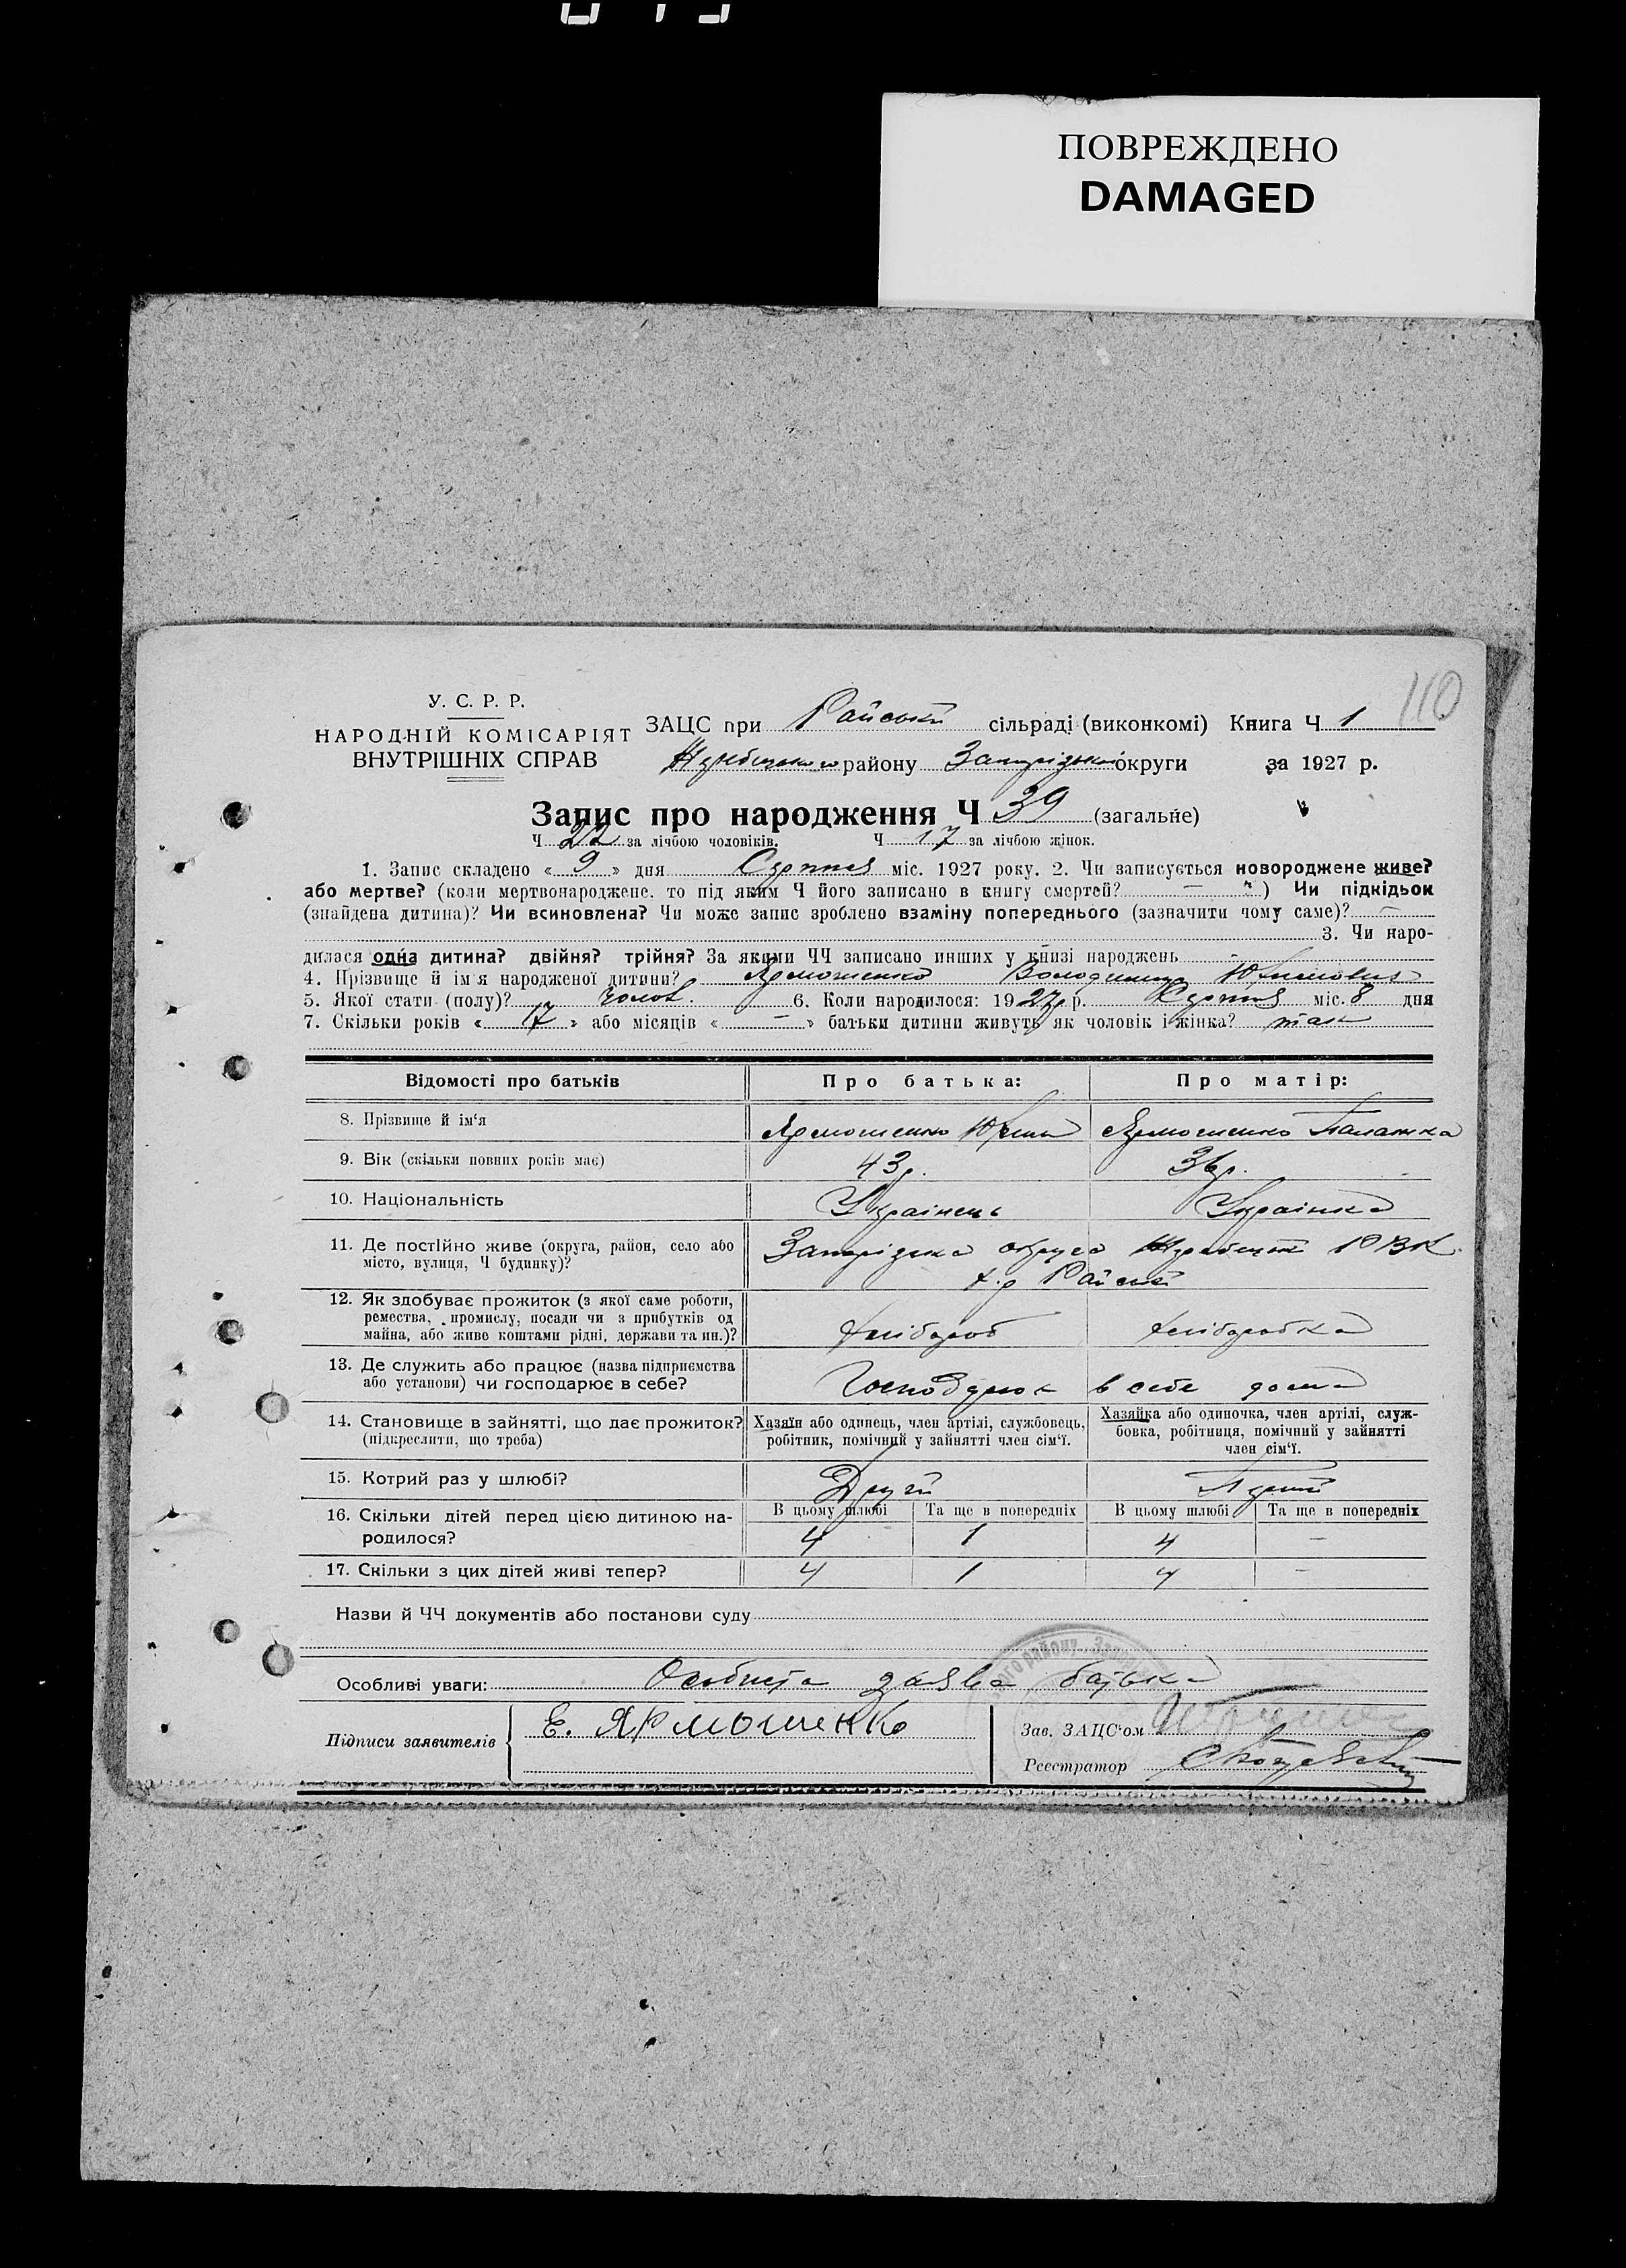 ПОВРЕЖДЕНО
DAMAGED
110
У. С. Р. Р.
НАРОДНІЙ КОМІСАРІЯТ
ВНУТРІШНІХ СПРАВ
ЗАЦС при Райській сільраді (виконкомі) Книга Ч 1
району Запорізької округи за 1927 р.
Запис про народження Ч 39 (загальне)
Ч 22 за лічбою чоловіків. Ч 17 за лічбою жінок.
1. Запис складено « 9 » дня Серпня міс. 1927 року. 2. Чи записується новороджене живе?
або мертве? (коли мертвонароджене, то під яким Ч його записано в книгу смертей? — ) Чи підкідьок
(знайдена дитина)? Чи всиновлена? Чи може запис зроблено взаміну попереднього (зазначити чому саме)? —
3. Чи наро-
дилася одна дитина? двійня? трійня? За якими ЧЧ записано инших у книзі народжень —
4. Прізвище й ім'я народженої дитини? Ярмошенко Володимир Юхимович
5. Якої стати (полу)? чолов. 6. Коли народилося: 1927 р. Серпня міс. 8 дня
7. Скільки років « 17 » або місяців « — » батьки дитини живуть як чоловік і жінка? так
Відомості про батьків
Про батька:
Про матір:
8. Прізвище й ім'я
Ярмошенко Юхим
Ярмошенко Палажка
9. Вік (скільки повних років має)
43 р.
36 р.
10. Національність
Українець
Українка
11. Де постійно живе (округа, район, село або
місто, вулиця, Ч будинку)?
Запорізька округа РВК
х. Райський
12. Як здобуває прожиток (з якої саме роботи,
ремества, промислу, посади чи з прибутків од
майна, або живе коштами рідні, держави та ин.)?
хлібороб
хліборобка
13. Де служить або працює (назва підприємства
або установи) чи господарює в себе?
в себе дома
14. Становище в зайнятті, що дає прожиток?
(підкреслити, що треба)
Хазяїн або одинець, член артілі, службовець,
робітник, помічний у зайнятті член сім'ї.
Хазяйка або одиночка, член артілі, служ-
бовка, робітниця, помічний у зайнятті
член сім'ї.
15. Котрий раз у шлюбі?
Другий
Перший
16. Скільки дітей перед цією дитиною на-
родилося?
В цьому шлюбі Та ще в попередніх В цьому шлюбі Та ще в попередніх
4 1 4 —
17. Скільки з цих дітей живі тепер?
4 1 4 —
Назви й ЧЧ документів або постанови суду
Особливі уваги: Особиста заява батька
Підписи заявителів
Е. Ярмошенко
Зав. ЗАЦС'ом
Реєстратор